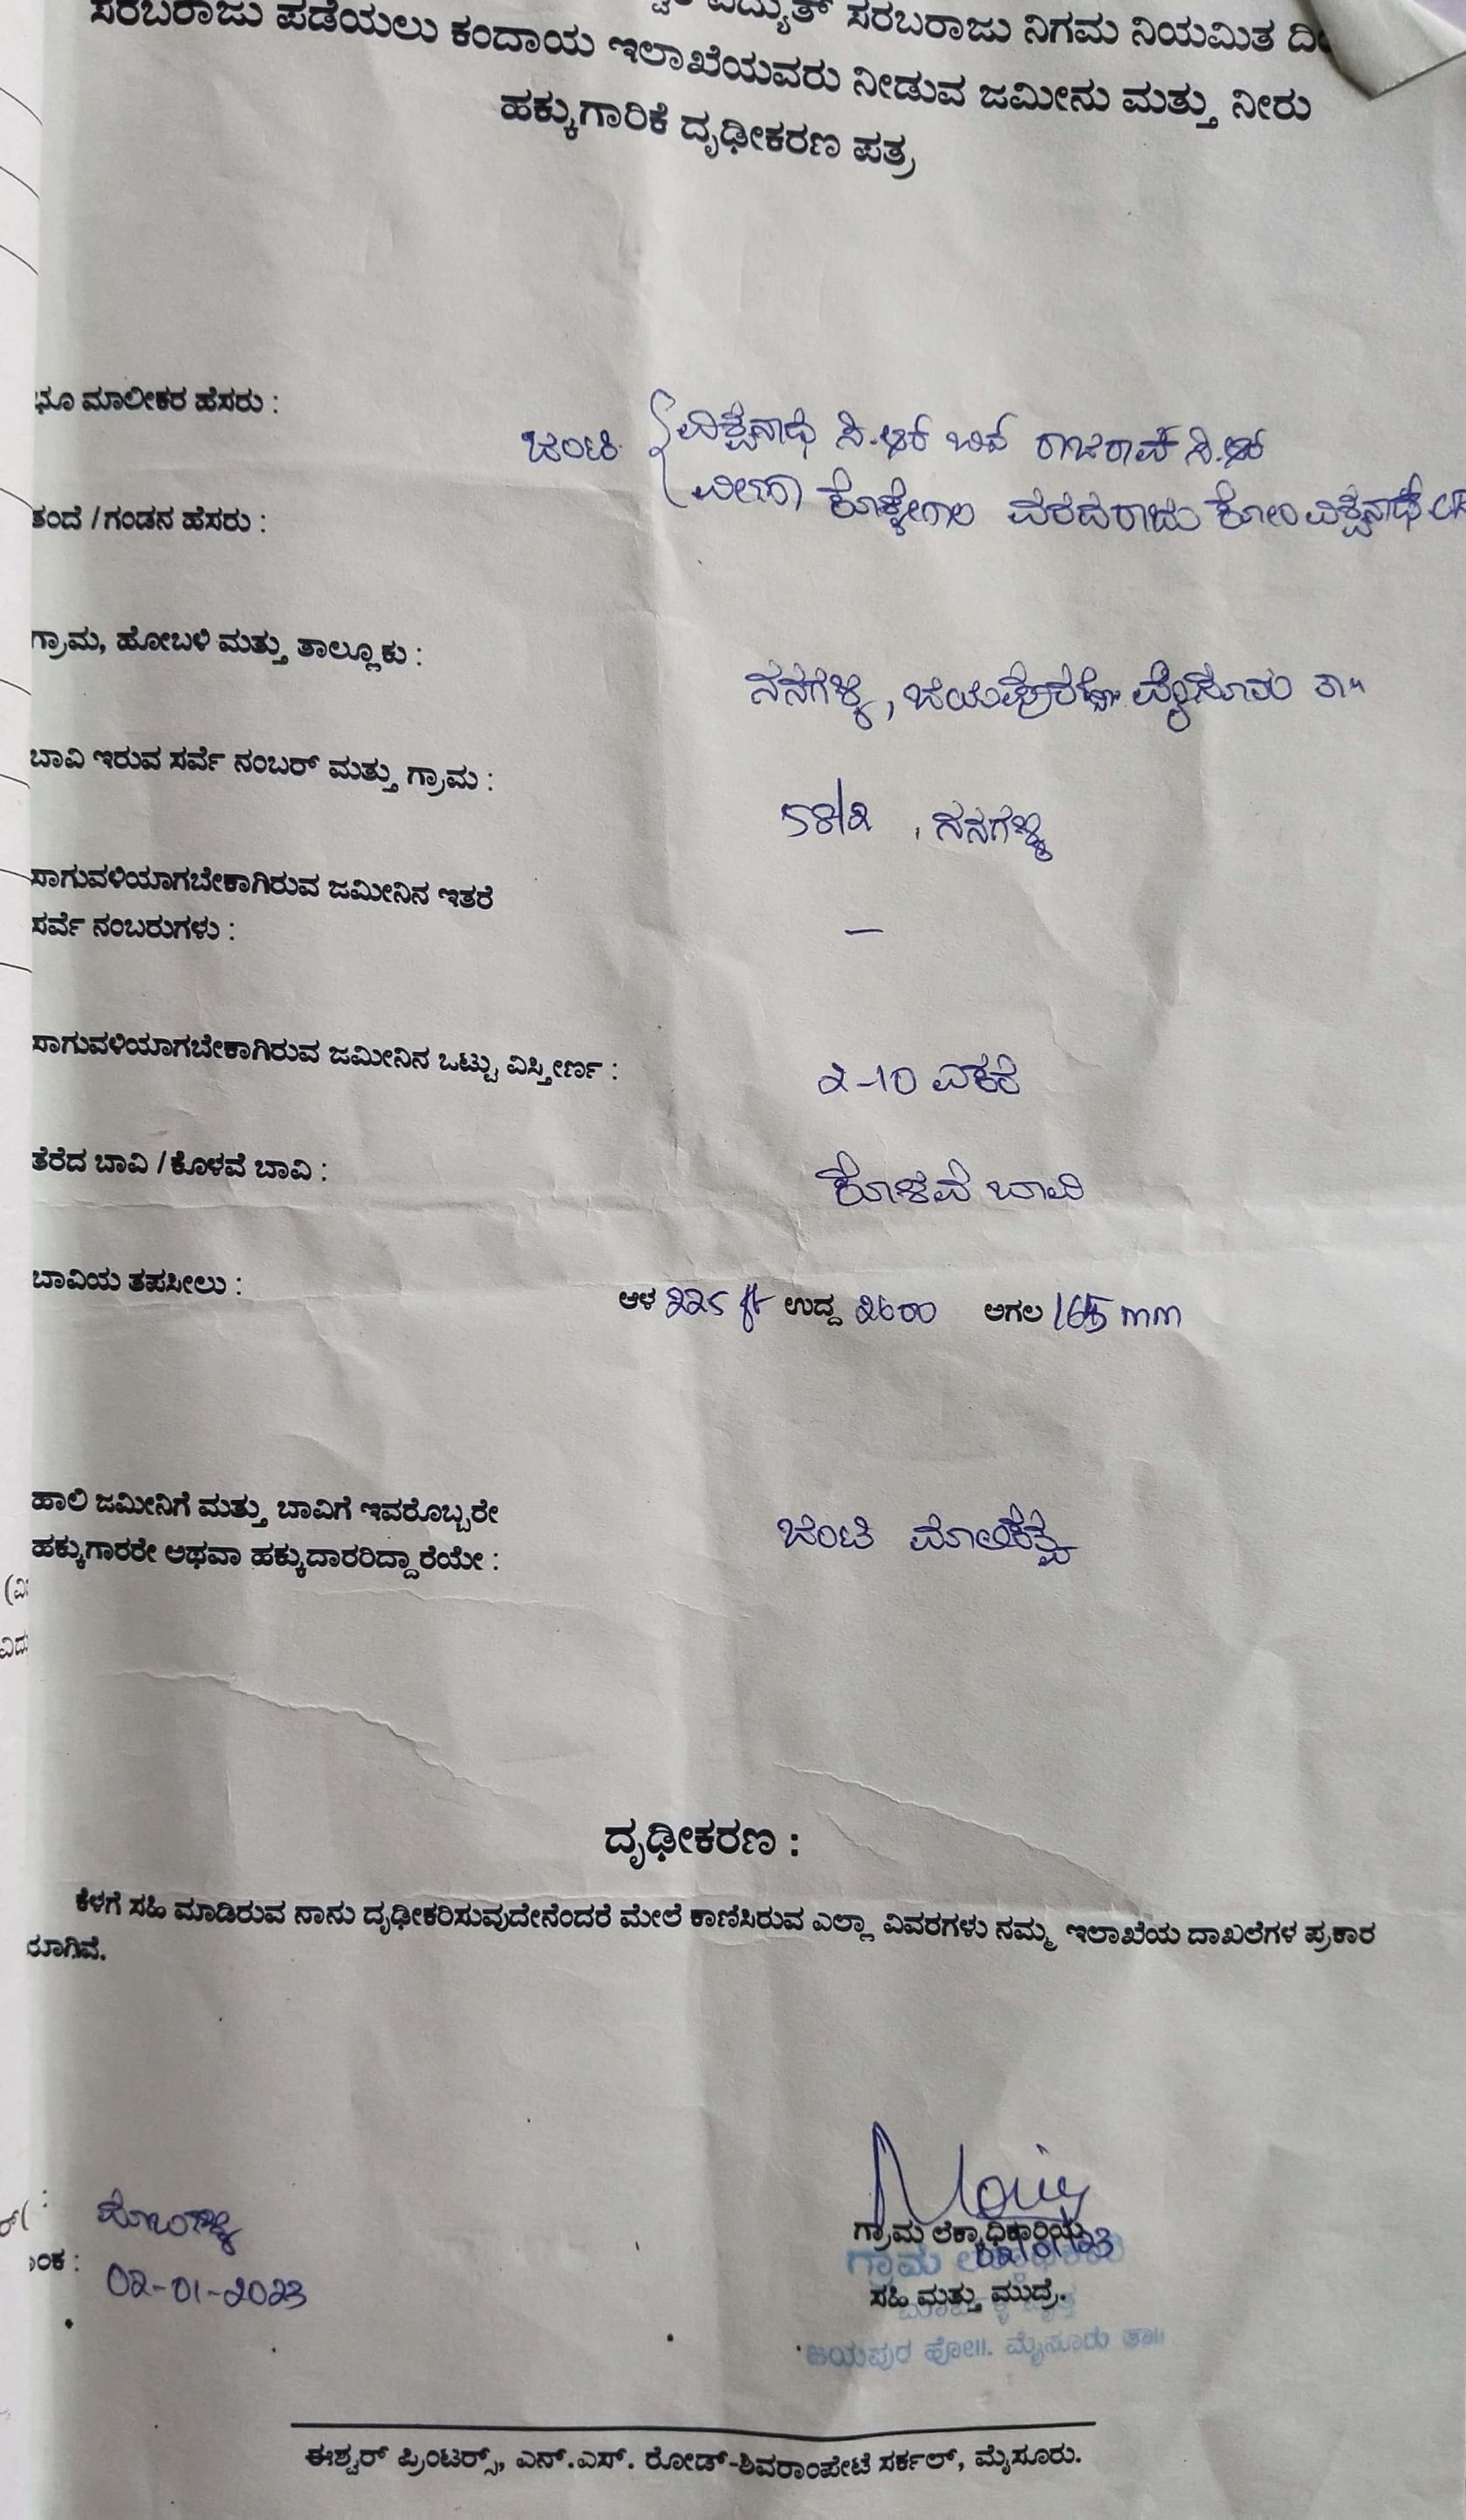 ವಿದ್ಯುತ್ ಸರಬರಾಜು ನಿಗಮ ನಿಯಮಿತ
ಸರಬರಾಜು ಪಡೆಯಲು ಕಂದಾಯ ಇಲಾಖೆಯವರು ನೀಡುವ ಜಮೀನು ಮತ್ತು ನೀರು
ಹಕ್ಕುಗಾರಿಕೆ ದೃಢೀಕರಣ ಪತ್ರ
ಭೂ ಮಾಲೀಕರ ಹೆಸರು :
ಜಂಟಿ ವಿಶ್ವನಾಥ ಸಿ.ಆರ್ ಬಿನ್ ರಾಜರಾವ್ ಸಿ.ಆರ್
ತಂದೆ / ಗಂಡನ ಹೆಸರು :
ವೀಣಾ ಕೊಳ್ಳೇಗಾಲ ವರದರಾಜು ಕೋಂ ವಿಶ್ವನಾಥ್ CR
ಗ್ರಾಮ, ಹೋಬಳಿ ಮತ್ತು ತಾಲ್ಲೂಕು :
ಜಯಪುರ ಹೋ ಮೈಸೂರು ತಾ॥
ಬಾವಿ ಇರುವ ಸರ್ವೆ ನಂಬರ್ ಮತ್ತು ಗ್ರಾಮ :
58/2 ,
ಸಾಗುವಳಿಯಾಗಬೇಕಾಗಿರುವ ಜಮೀನಿನ ಇತರೆ
ಸರ್ವೆ ನಂಬರುಗಳು : —
ಸಾಗುವಳಿಯಾಗಬೇಕಾಗಿರುವ ಜಮೀನಿನ ಒಟ್ಟು ವಿಸ್ತೀರ್ಣ : 2-10 ಎಕರೆ
ತೆರೆದ ಬಾವಿ / ಕೊಳವೆ ಬಾವಿ : ಕೊಳವೆ ಬಾವಿ
ಬಾವಿಯ ತಪಸೀಲು : ಆಳ 225 ft ಉದ್ದ 2600 ಅಗಲ 165 mm
ಹಾಲಿ ಜಮೀನಿಗೆ ಮತ್ತು ಬಾವಿಗೆ ಇವರೊಬ್ಬರೇ
ಹಕ್ಕುಗಾರರೇ ಅಥವಾ ಹಕ್ಕುದಾರರಿದ್ದಾರೆಯೇ : ಜಂಟಿ ಮಾಲಿಕತ್ವ
ದೃಢೀಕರಣ :
ಕೆಳಗೆ ಸಹಿ ಮಾಡಿರುವ ನಾನು ದೃಢೀಕರಿಸುವುದೇನೆಂದರೆ ಮೇಲೆ ಕಾಣಿಸಿರುವ ಎಲ್ಲಾ ವಿವರಗಳು ನಮ್ಮ ಇಲಾಖೆಯ ದಾಖಲೆಗಳ ಪ್ರಕಾರ
ಯಾಗಿವೆ.
02-01-2023
ಗ್ರಾಮ ಲೆಕ್ಕಾಧಿಕಾರಿಯ
02/01/23
ಸಹಿ ಮತ್ತು ಮುದ್ರೆ.
ಜಯಪುರ ಹೋ॥. ಮೈಸೂರು ತಾ॥
ಈಶ್ವರ್ ಪ್ರಿಂಟರ್ಸ್, ಎನ್.ಎಸ್. ರೋಡ್-ಶಿವರಾಂಪೇಟೆ ಸರ್ಕಲ್, ಮೈಸೂರು.